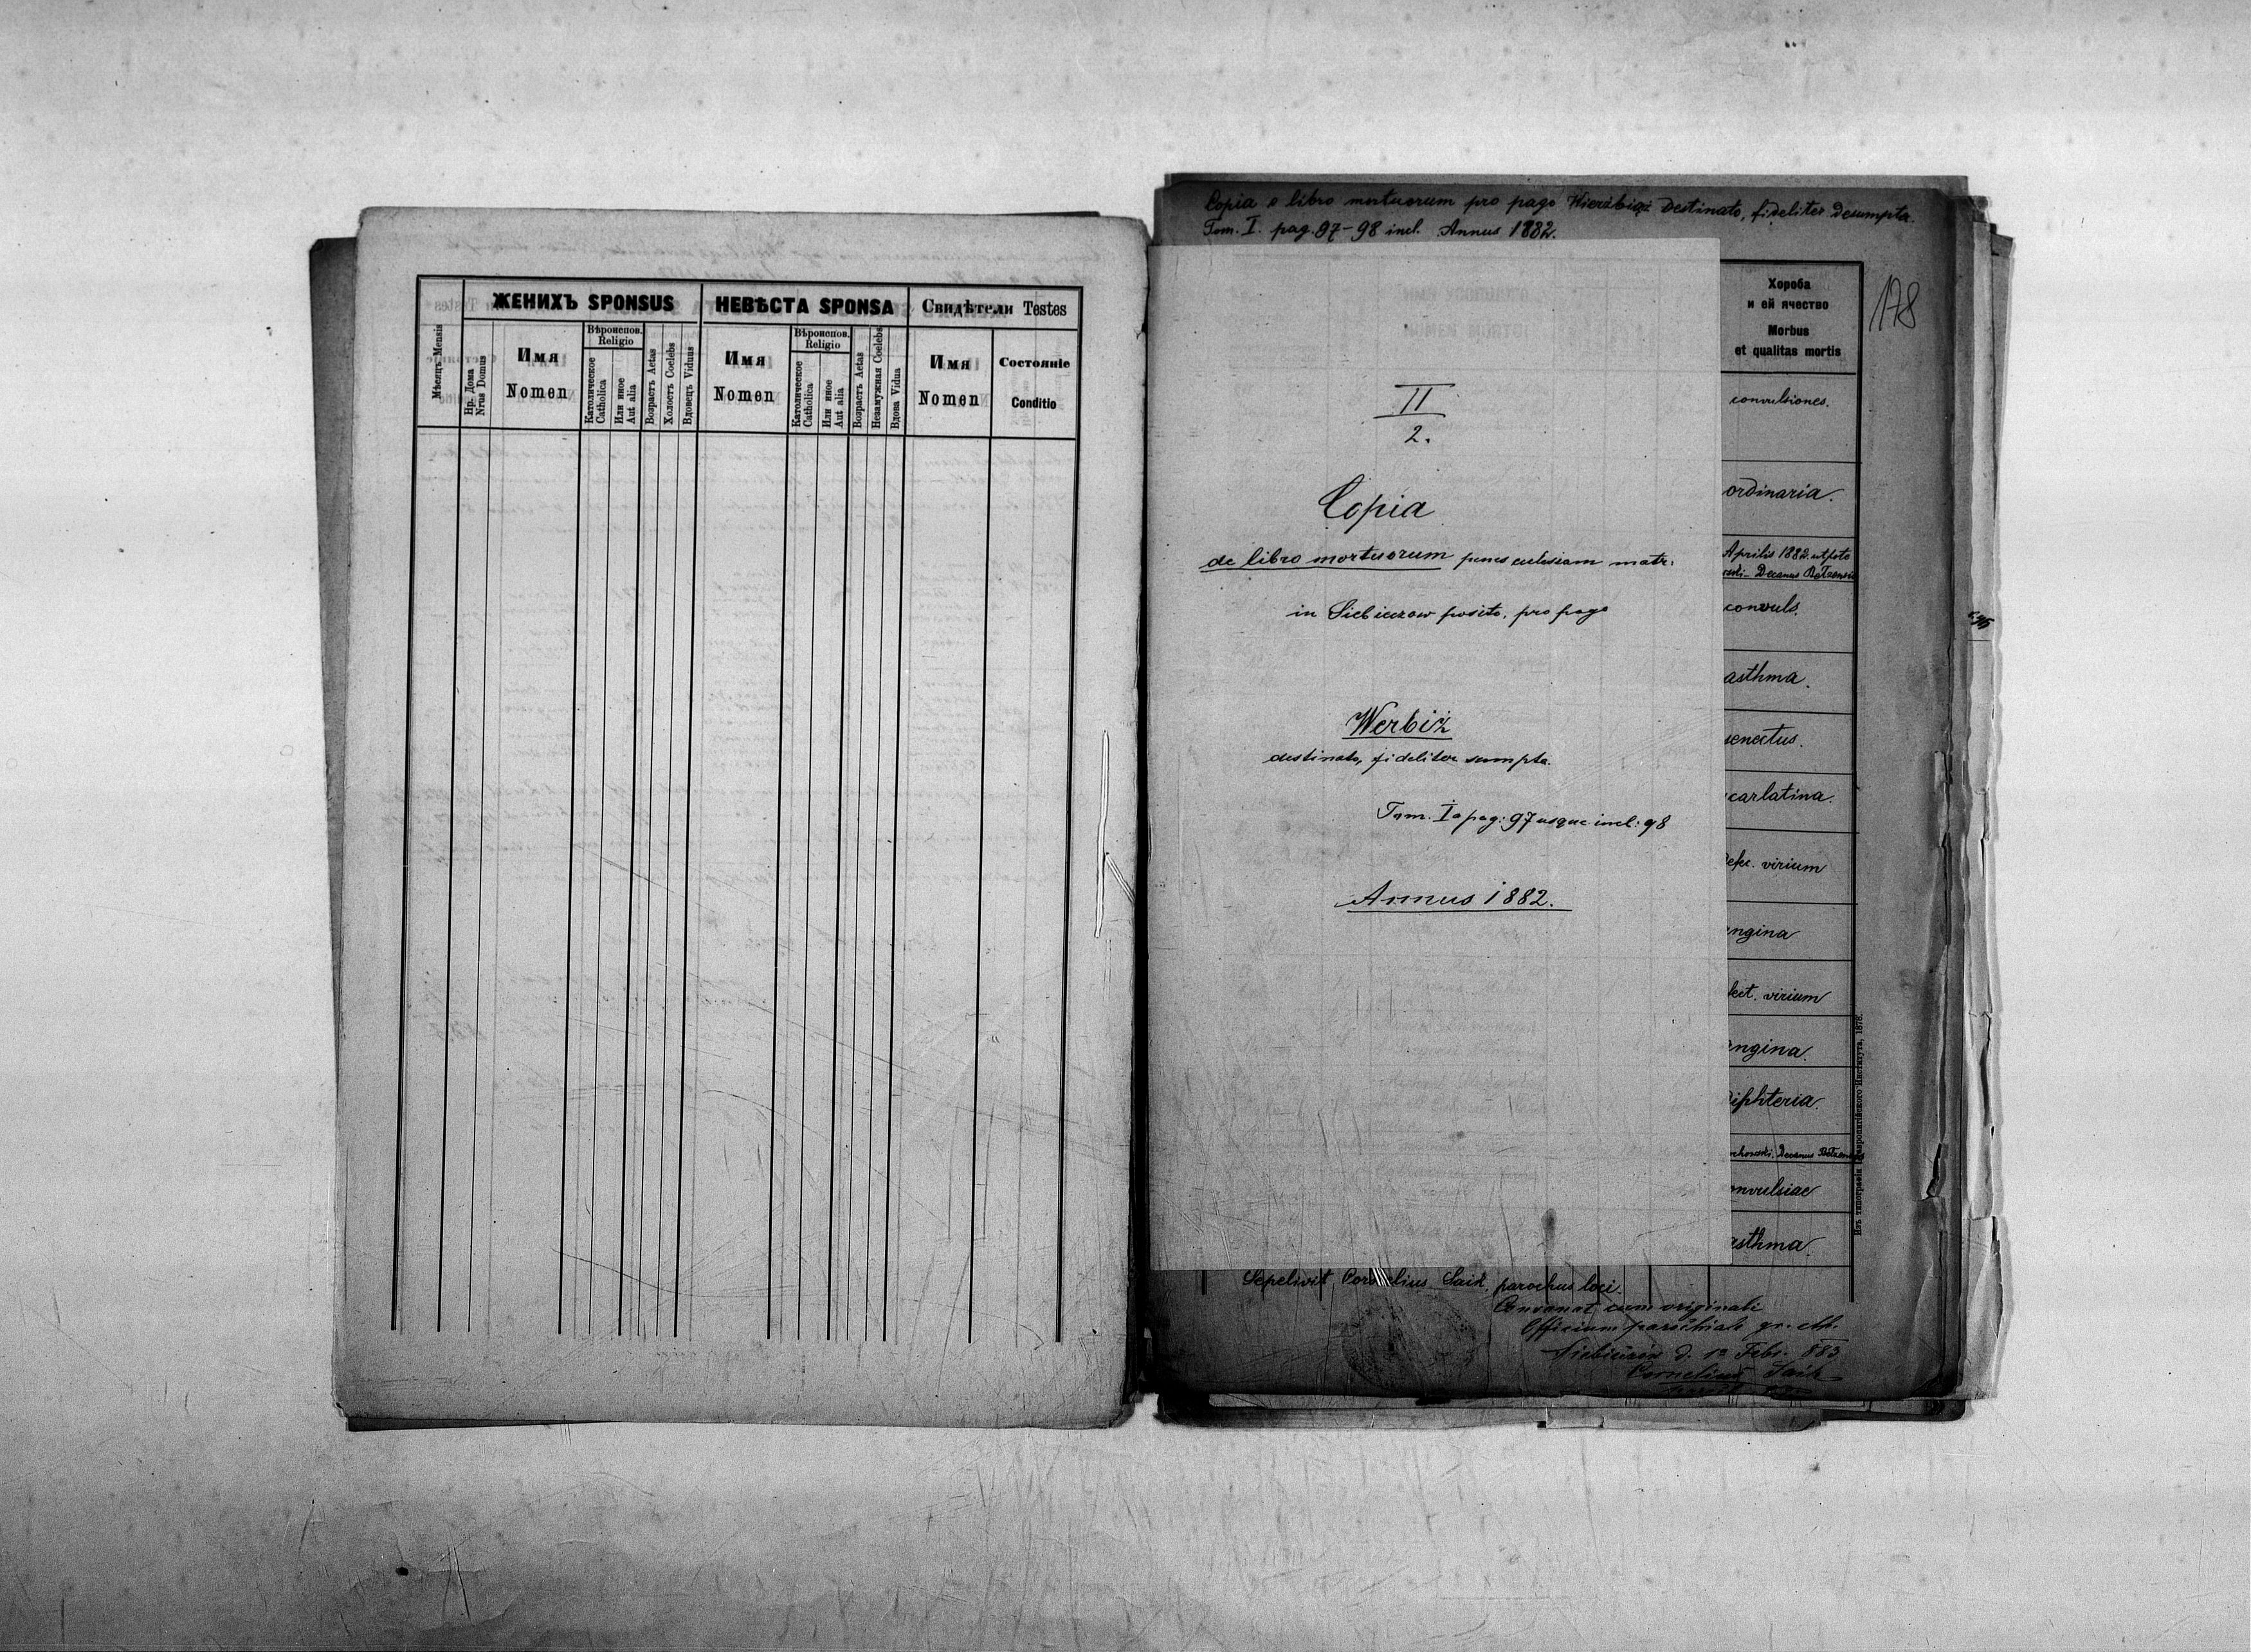 ЖЕНИХЪ SPONSUS
НЕВѢСТА SPONSA
Свидѣтели Testes
Мѣсяцъ Mensis
Нр. Дома
Nrus Domus
Имя
Nomen
Вѣроиспов.
Religio
Католическое
Catholica
Или иное
Aut alia
Возрастъ Aetas
Холостъ Coelebs
Вдовецъ Viduus
Имя
Nomen
Вѣроиспов.
Religio
Католическое
Catholica
Или иное
Aut alia
Возрастъ Aetas
Незамужная Coelebs
Вдова Vidua
Имя
Nomen
Состояніе
Conditio
Copia e libro mortuorum pro pago destinato, fideliter desumpta.
Tom. I. pag. 97-98 incl. Annus 1882.
178
II
2.
Copia
de libro mortuorum penes ecclesiam matr.
in posito, pro pago
Werbiż
destinato, fideliter sumpta.
Tom. I a pag: 97 usque incl: 98
Annus 1882.
Хороба
и ей ячество
Morbus
et qualitas mortis
convulsiones.
ordinaria.
Aprilis 1882. utpote
Decanus
convuls.
asthma.
senectus.
carlatina.
virium
ngina
fect. virium
ngina.
iphteria.
Decanus
onvulsiae
asthma.
Sepelivit Cornelius Saik, parochus loci.
Consonat cum originali
Officium parochiale gr. cth.
Febr. 883
Cornelius Saik
Изъ типографіи Ставропигійского Института, 1878.